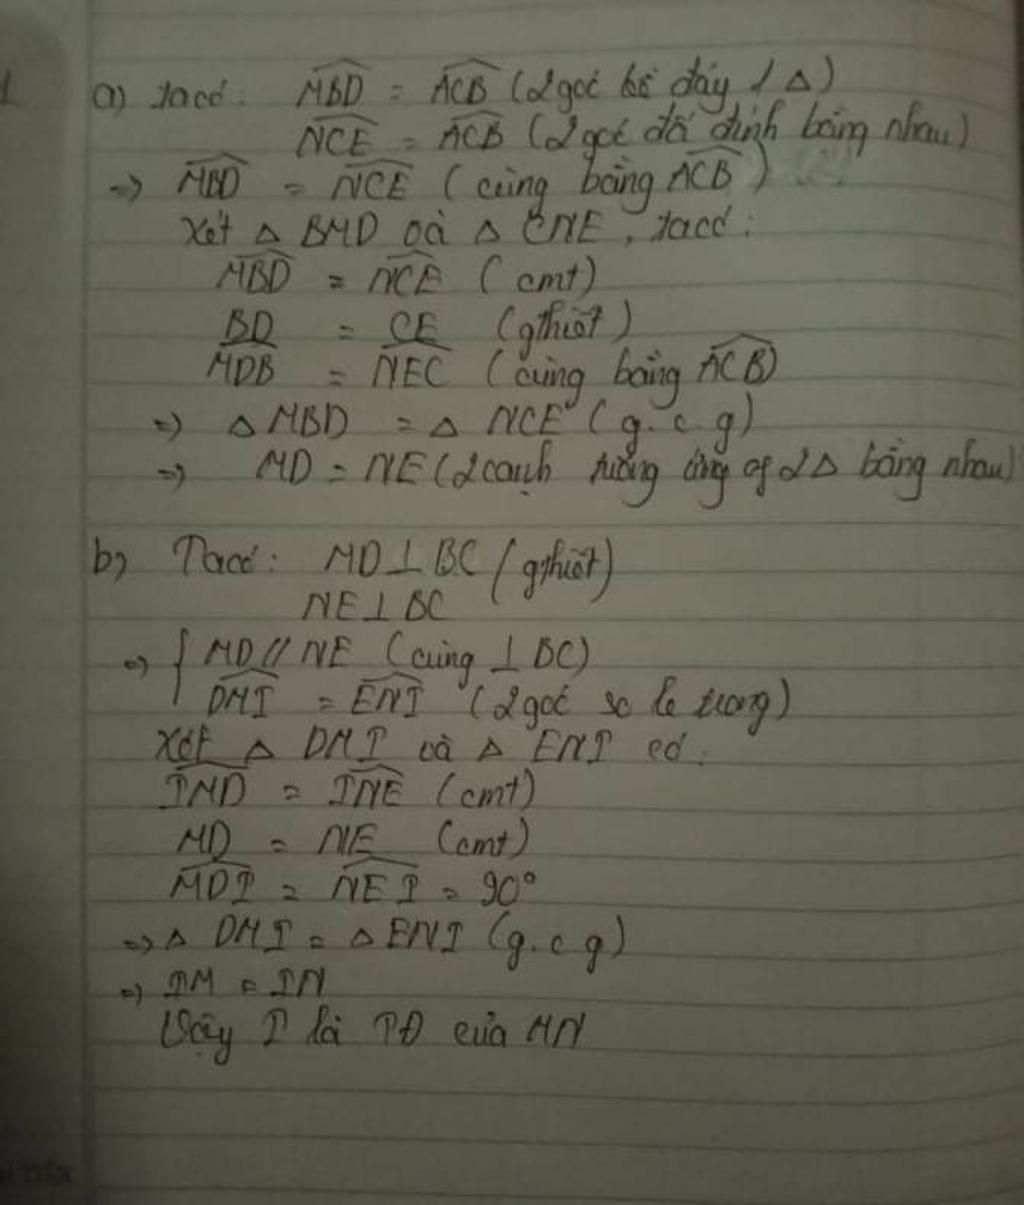 a) ta có: MBD = ACB (2 góc kề đáy 1 Δ)
NCE = ACB (2 góc đối đỉnh bằng nhau)
=> MBD = NCE (cùng bằng ACB)
Xét Δ BMD và Δ CNE, ta có:
MBD = NCE (cmt)
BD = CE (gthiết)
MDB = NEC (cùng bằng ACB)
=> Δ MBD = Δ NCE (g.c.g)
=> MD = NE (2 cạnh tương ứng of 2 Δ bằng nhau)
b) Ta có: MD ⊥ BC (gthiết)
NE ⊥ BC
=> { MD // NE (cùng ⊥ BC)
DMI = ENI (2 góc so le trong)
Xét Δ DMI và Δ ENI có:
IMD = INE (cmt)
MD = NE (cmt)
MDI = NEI = 90°
=> Δ DMI = Δ ENI (g.c.g)
=> IM = IN
Vậy I là TĐ của MN